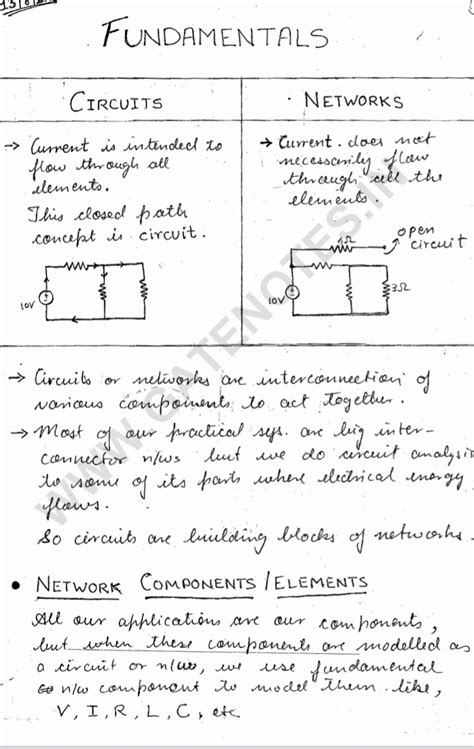 FUNDAMENTALS
CIRCUITS
→ Current is intended to
flow through all
elements.
This closed path
concept is circuit.
10V
· NETWORKS
→ Current. does not
necessarily flow
through all the
elements.
open
circuit
10V
3Ω
→ Circuits or networks are interconnection of
various components to act together.
→ Most of our practical sys. are big inter-
connector n/ws but we do circuit analysis
to some of its parts where electrical energy
flows.
So circuits are building blocks of networks.
• NETWORK COMPONENTS / ELEMENTS
All our applications are our components,
but when these components are modelled as
a circuit or n/w, we use fundamental
n/w component to model them. like,
V, I, R, L, C, etc
WWW.GATENOTES.IN